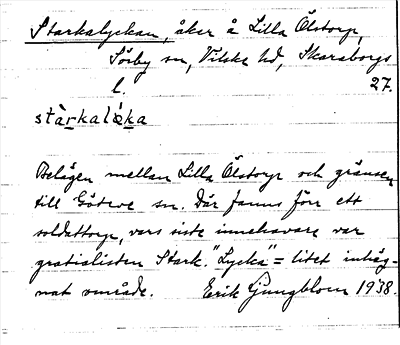 Starkalyckan, åker å Lilla Ölstorp,
Sörby sn, Vilske hd, Skaraborgs
l. 27.
stàrkalẁka
Belägen mellan Lilla Ölstorp och gränsen
till Göteve sn. Där fanns förr ett
soldattorp, vars siste innehavare var
gratialisten Stark. "Lycka" = litet inhäg-
nat område. Erik Ljungblom 1938.